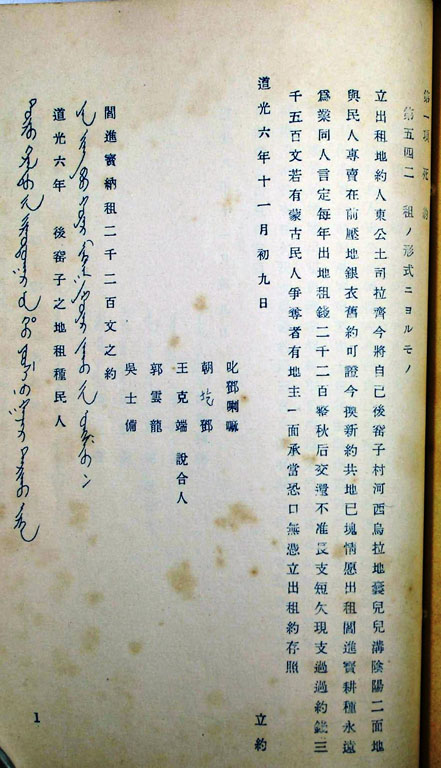 第一項 死約
第五四二 租ノ形式ニヨルモノ
立出租地約人東公土司拉齊今將自己後窑子村河西烏拉地嚢兒兒溝陰陽二面地
與民人專賣在前壓地銀衣舊約可證今換新約共地已塊情愿出租閻進寳耕種永遠
爲業同人言定每年出地租錢二千二百整秋后交還不准長支短欠現支過過約錢三
千五百文若有蒙古民人爭奪者有地主一面承當恐口無憑立出租約存照
道光六年十一月初九日 立約
叱鄧喇嘛
朝圪鄧
王克端 說合人
郭雲龍
吳士備
閻進寳納租二千二百文之約
道光六年 後窑子之地租種民人
1